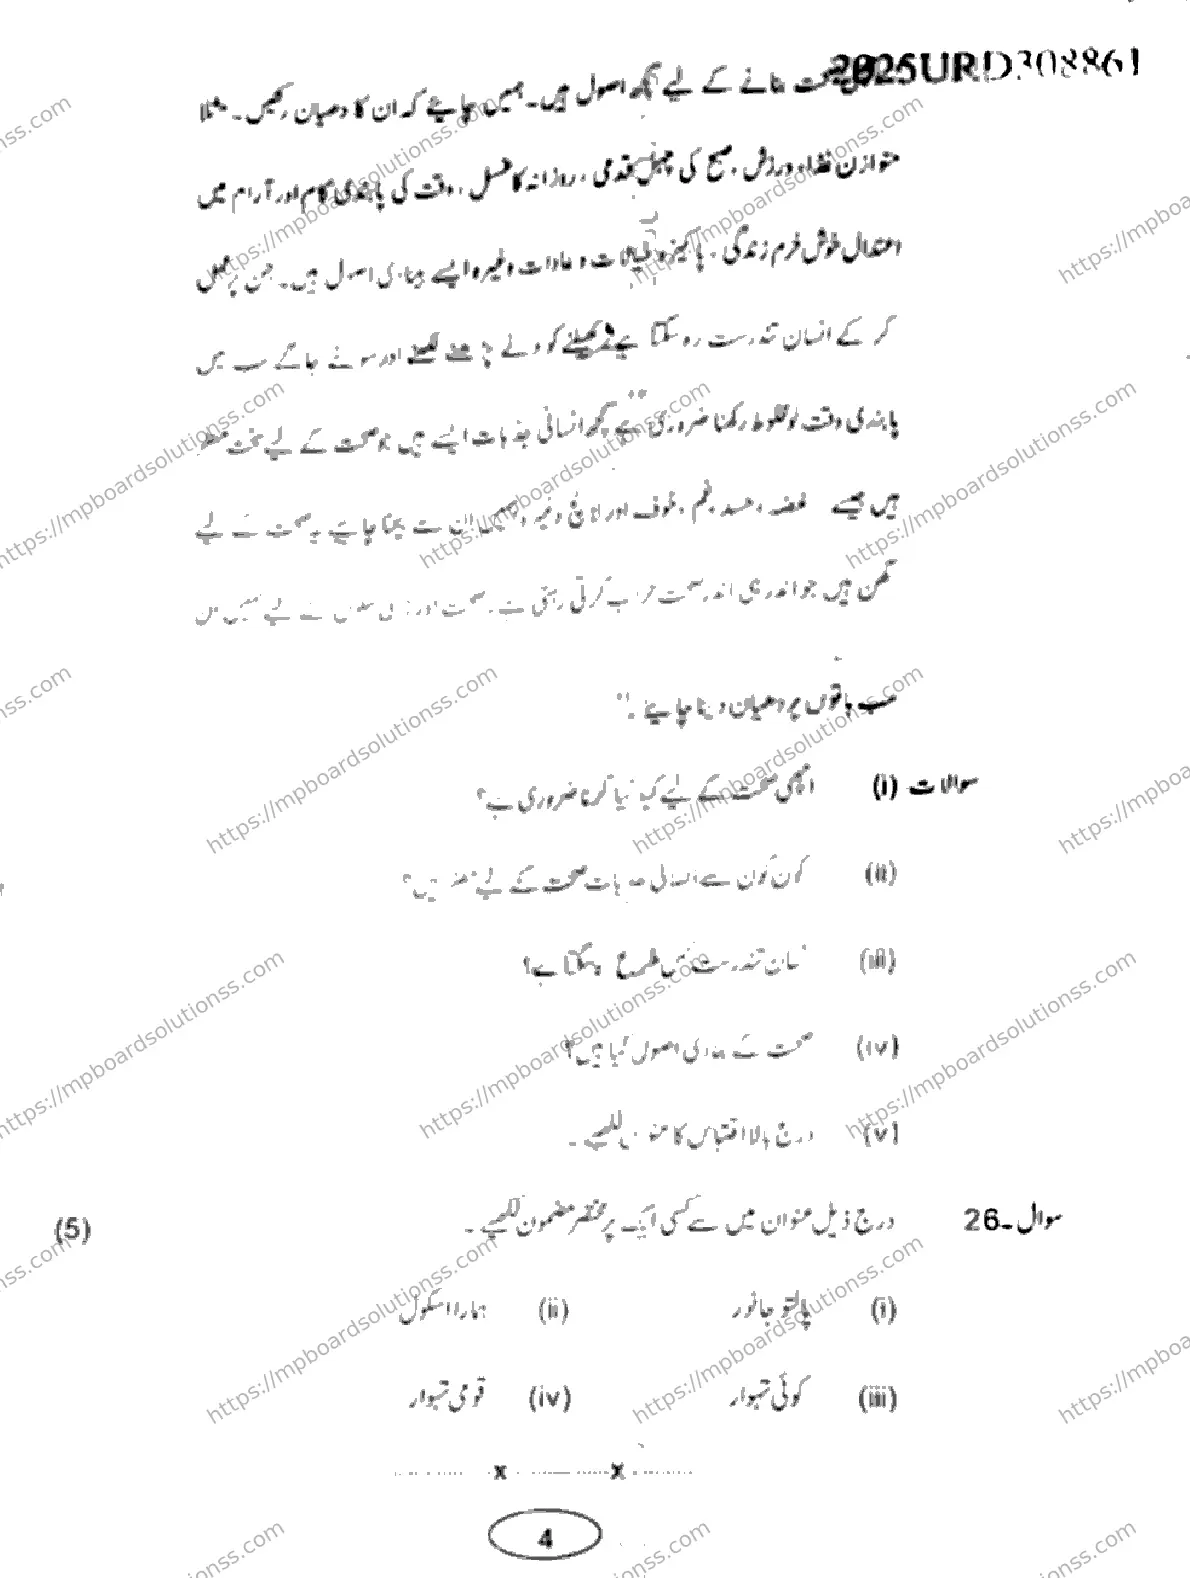 2025URD308861
صحت بنانے کے لیے کچھ اصول ہیں۔ ہمیں چاہئے کہ ان کا دھیان رکھیں۔ مثلاً
متوازن غذا، ورزش، صبح کی چہل قدمی، روزانہ کا غسل، وقت کی پابندی کام اور آرام میں
اعتدال خوش خرم زندگی، پاکیزہ خیالات و عادات وغیرہ ایسے بنیادی اصول ہیں۔ جن پر عمل
کر کے انسان تندرست رہ سکتا ہے کھیلنے کودنے پڑھنے لکھنے اور سونے جاگے سب میں
پابندی وقت ملحوظ رکھنا ضروری ہے کچھ انسانی جذبات ایسے ہیں جو صحت کے لیے سخت مضر
ہیں جیسے غصہ، حسد، غم، خوف اور لالچ وغیرہ ہمیں ان سے بچنا چاہیے یہ صحت کے لیے
گھن ہیں جو اندر ہی اندر صحت خراب کرتی رہتی ہے۔ صحت اور کے لیے ہمیں ان
سب باتوں پر دھیان دینا چاہیے۔"
سوالات (i) اچھی صحت کے لیے کیا کیا کرنا ضروری ہے؟
(ii) کون کون سے انسانی جذبات صحت کے لیے مضر ہیں؟
(iii) انسان تندرست کس طرح رہ سکتا ہے؟
(iv) صحت کے بنیادی اصول کیا ہیں؟
(v) درج بالا اقتباس کا عنوان لکھیے۔
سوال۔26 درج ذیل عنوان میں سے کسی ایک پر مختصر مضمون لکھیے۔ (5)
(i) پالتو جانور (ii) ہمارا اسکول
(iii) کوئی تہوار (iv) قومی تہوار
x x
4
https://mpboardsolutionss.com